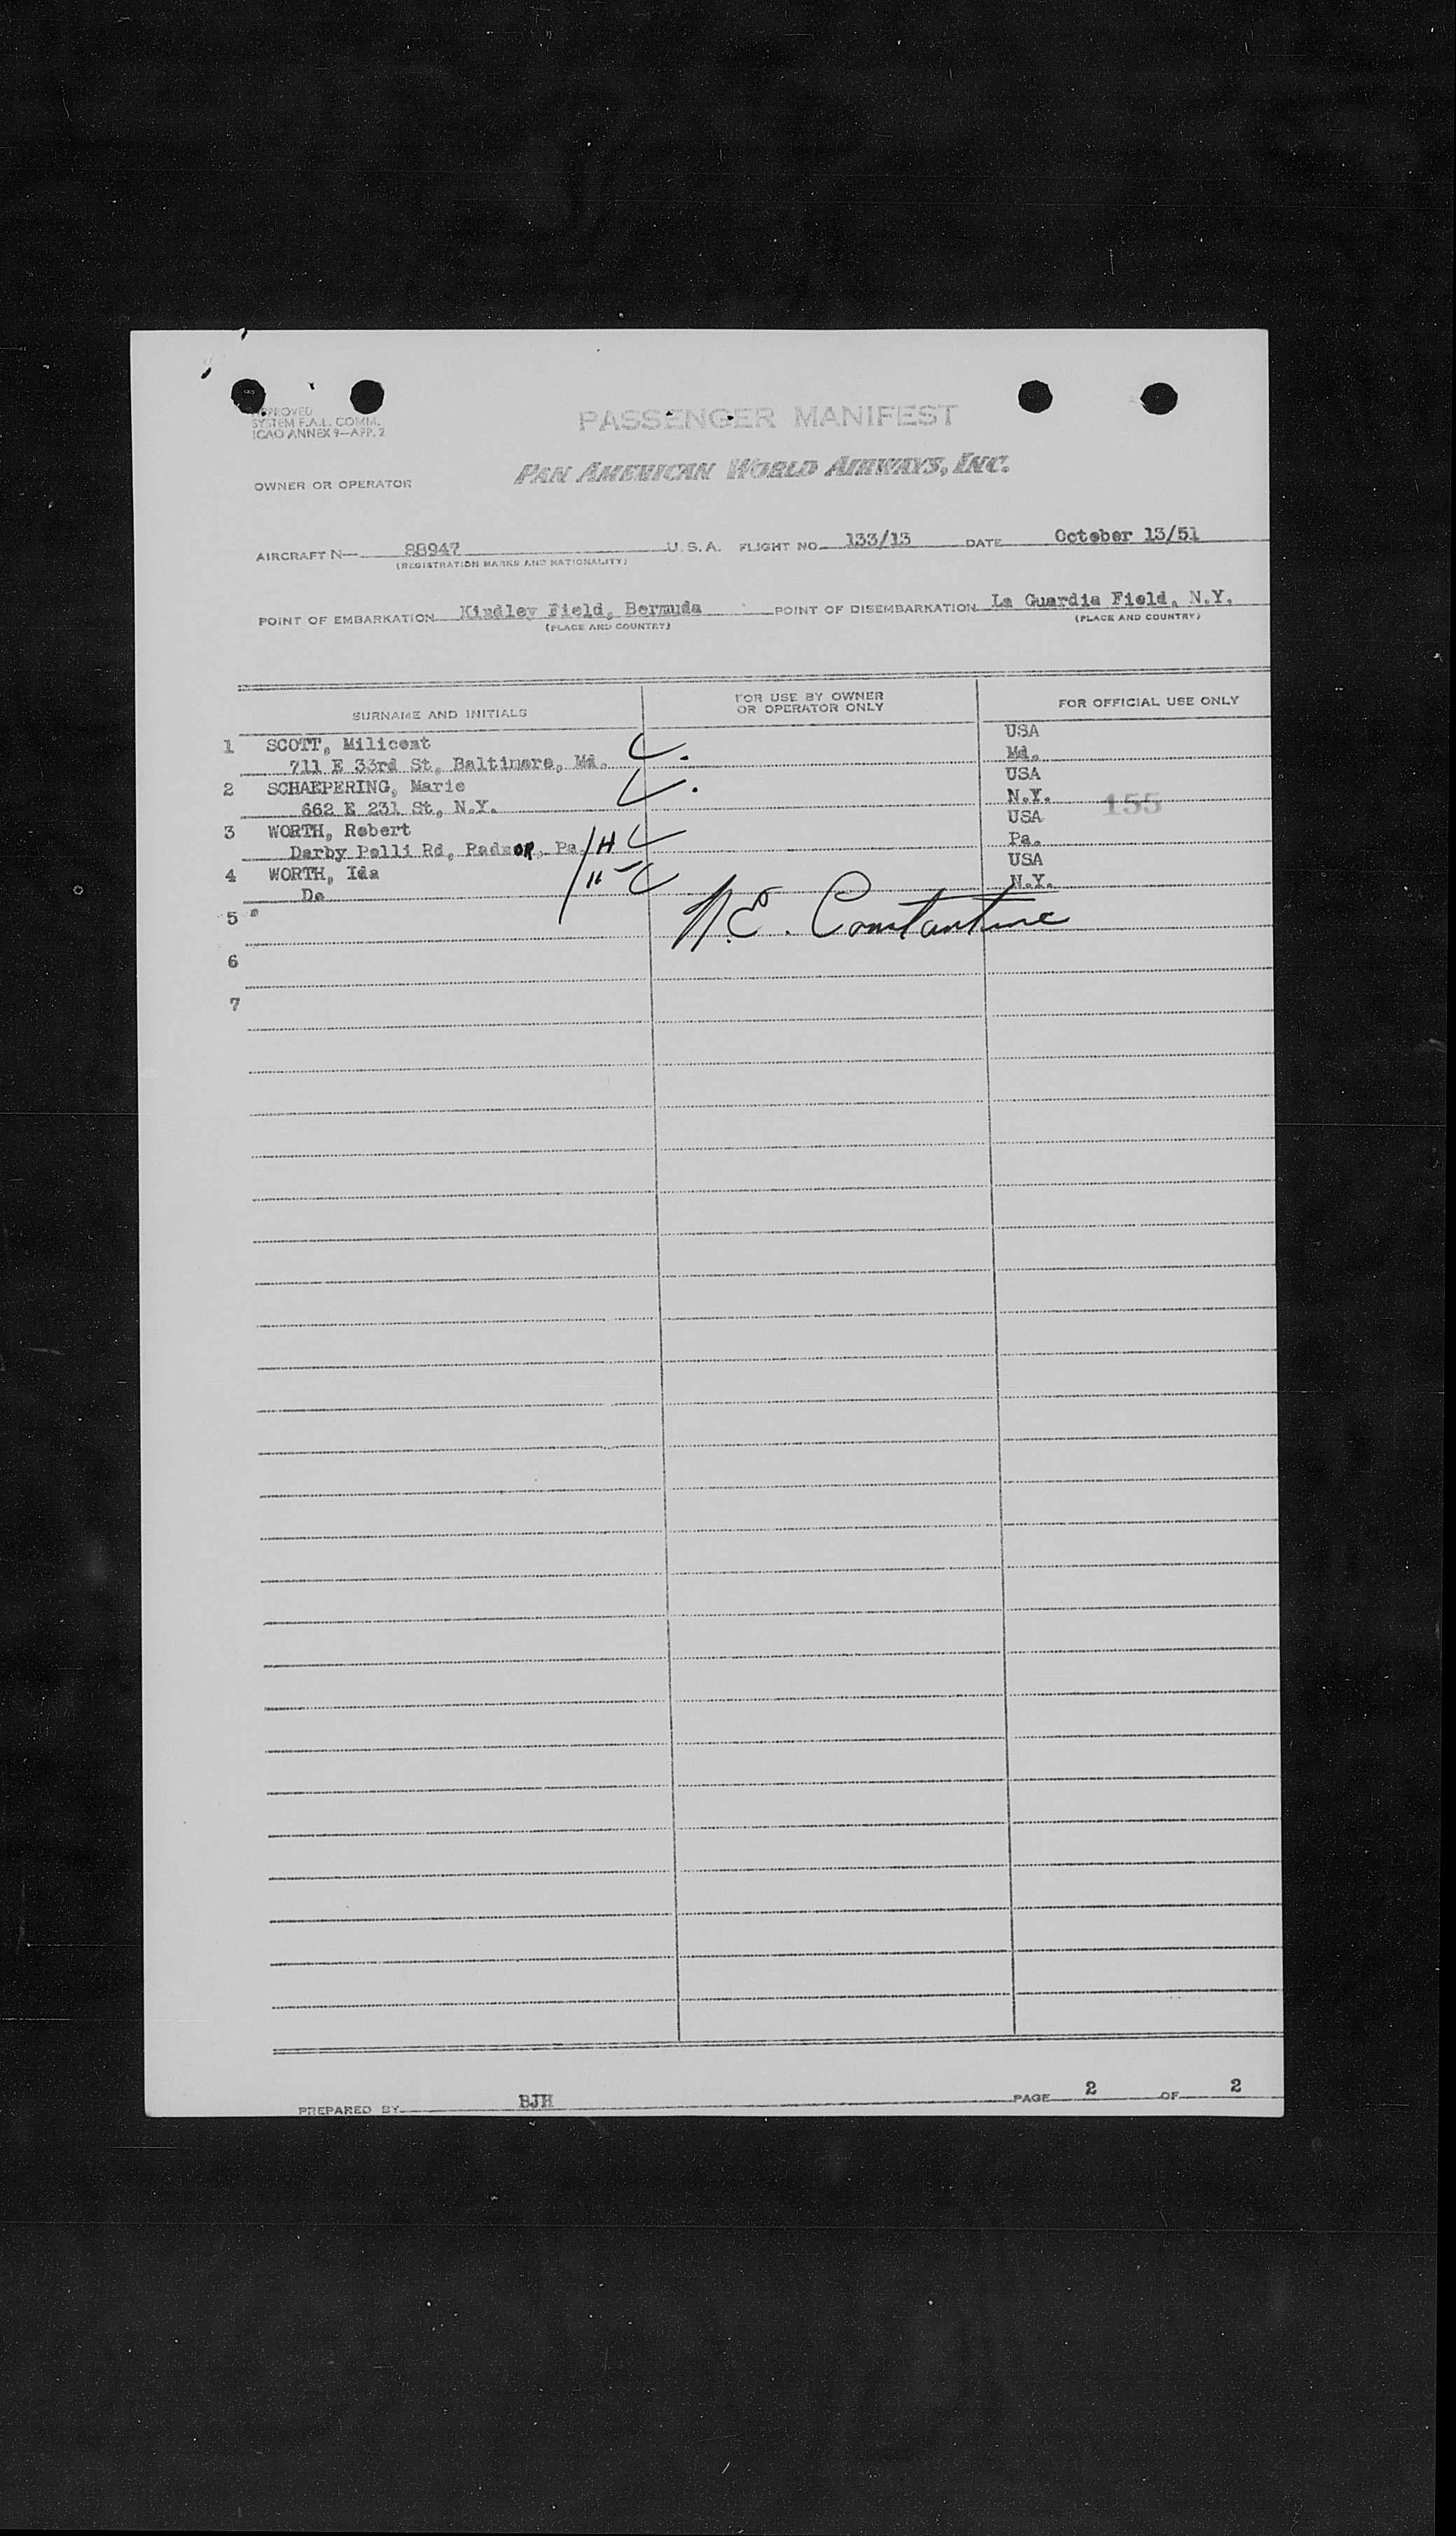 APPROVED
SYSTEM F.A.L. COMM.
ICAO ANNEX 9—APP. 2
PASSENGER MANIFEST
PAN AMERICAN WORLD AIRWAYS, INC.
OWNER OR OPERATOR
AIRCRAFT N— 88947 U. S. A. FLIGHT NO. 133/13 DATE October 13/51
(REGISTRATION MARKS AND NATIONALITY)
POINT OF EMBARKATION Kindley Field, Bermuda POINT OF DISEMBARKATION La Guardia Field, N.Y.
(PLACE AND COUNTRY) (PLACE AND COUNTRY)
SURNAME AND INITIALS FOR USE BY OWNER OR OPERATOR ONLY FOR OFFICIAL USE ONLY
1 SCOTT, Milicent USA
711 E 33rd St, Baltimore, Md. C. Md.
2 SCHAEPERING, Marie USA
662 E 231 St, N.Y. C. N.Y. 155
3 WORTH, Robert USA
Darby Polli Rd, Radnor, Pa. H C Pa.
4 WORTH, Ida USA
Do " C N.Y.
5 N.E. Constantine
6
7
PREPARED BY BJH PAGE 2 OF 2